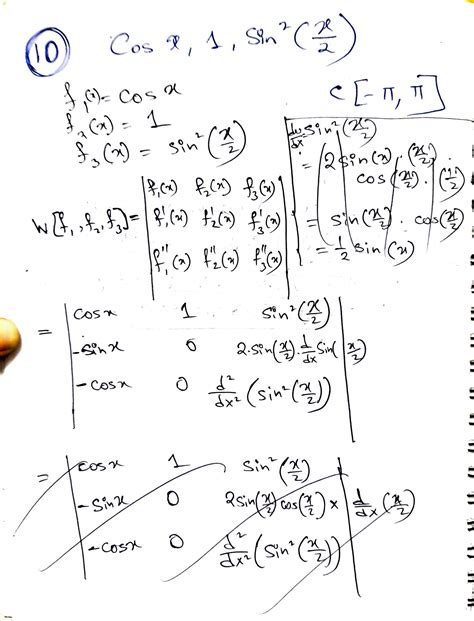 (10) Cos x, 1, Sin² (x/2)
C [-π, π]
f₁(x) = Cos x
f₂(x) = 1
f₃(x) = Sin² (x/2)
du/dx = Sin² (x/2)
= 2 Sin(x/2) · Cos(x/2) · (1/2)
= Sin(x/2) · Cos(x/2)
= 1/2 Sin(x)
W[f₁, f₂, f₃] = | f₁(x) f₂(x) f₃(x) |
| f₁'(x) f₂'(x) f₃'(x) |
| f₁''(x) f₂''(x) f₃''(x) |
= | Cos x 1 Sin² (x/2) |
| -Sin x 0 2·Sin(x/2)·d/dx Sin(x/2) |
| -Cos x 0 d²/dx² (Sin² (x/2)) |
= | Cos x 1 Sin² (x/2) |
| -Sin x 0 2Sin(x/2) Cos(x/2) × d/dx (x/2) |
| -Cos x 0 d²/dx² (Sin² (x/2)) |